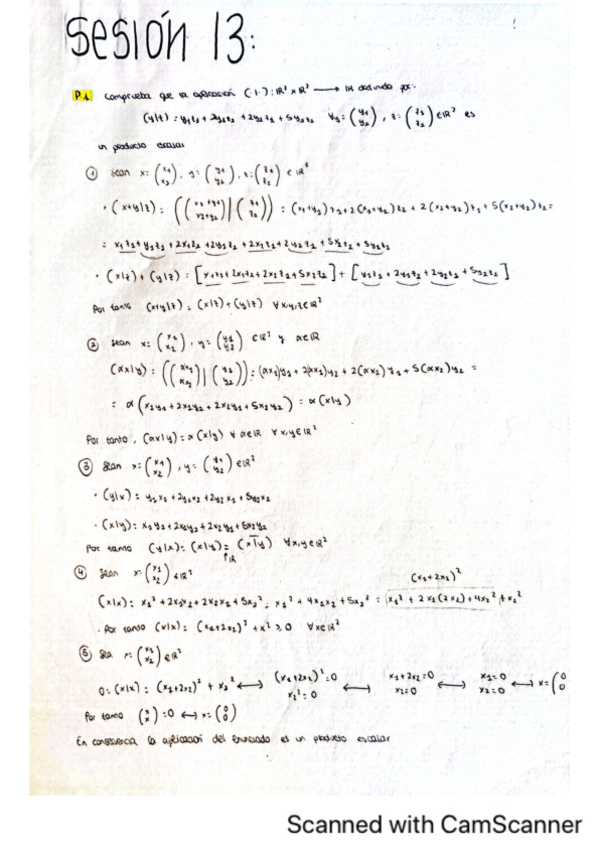 Sesión 13:
P.1 Comprueba que la aplicación (·|·): ℝ² x ℝ² → ℝ definida por:
(y|z) = y₁z₁ + 2y₁z₂ + 2y₂z₁ + 5y₂z₂ ∀y = (y₁ y₂), z = (z₁ z₂) ∈ ℝ² es
un producto escalar
① Sean x = (x₁ x₂), y = (y₁ y₂), z = (z₁ z₂) ∈ ℝ²
· (x+y|z) = ((x₁+y₁ x₂+y₂)|(z₁ z₂)) = (x₁+y₁)z₁ + 2(x₁+y₁)z₂ + 2(x₂+y₂)z₁ + 5(x₂+y₂)z₂ =
= x₁z₁ + y₁z₁ + 2x₁z₂ + 2y₁z₂ + 2x₂z₁ + 2y₂z₁ + 5x₂z₂ + 5y₂z₂
· (x|z) + (y|z) = [x₁z₁ + 2x₁z₂ + 2x₂z₁ + 5x₂z₂] + [y₁z₁ + 2y₁z₂ + 2y₂z₁ + 5y₂z₂]
Por tanto (x+y|z) = (x|z) + (y|z) ∀x,y,z∈ℝ²
② Sean x = (x₁ x₂), y = (y₁ y₂) ∈ℝ² y α∈ℝ
(αx|y) = ((αx₁ αx₂)|(y₁ y₂)) = (αx₁)y₁ + 2(αx₁)y₂ + 2(αx₂)y₁ + 5(αx₂)y₂ =
= α(x₁y₁ + 2x₁y₂ + 2x₂y₁ + 5x₂y₂) = α(x|y)
Por tanto, (αx|y) = α(x|y) ∀α∈ℝ ∀x,y∈ℝ²
③ Sean x = (x₁ x₂), y = (y₁ y₂) ∈ℝ²
· (y|x) = y₁x₁ + 2y₁x₂ + 2y₂x₁ + 5y₂x₂
· (x|y) = x₁y₁ + 2x₁y₂ + 2x₂y₁ + 5x₂y₂
Por tanto (y|x) = (x|y) = (x|y) ∀x,y∈ℝ²
ℝ
④ Sean x = (x₁ x₂) ∈ℝ²
(x₁+2x₂)²
(x|x) = x₁² + 2x₁x₂ + 2x₂x₁ + 5x₂² = x₁² + 4x₁x₂ + 5x₂² = x₁² + 2x₁(2x₂) + 4x₂² + x₂²
· Por tanto (x|x) = (x₁+2x₂)² + x² ≥ 0 ∀x∈ℝ²
⑤ Sea x = (x₁ x₂) ∈ℝ²
0 = (x|x) = (x₁+2x₂)² + x₂² ⟷ (x₁+2x₂)² = 0 x₂² = 0 ⟷ x₁+2x₂ = 0 x₂ = 0 ⟷ x₁ = 0 x₂ = 0 ⟷ x = (0 0
Por tanto (x x) = 0 ⟷ x = (0 0)
En consecuencia la aplicación del enunciado es un producto escalar
Scanned with CamScanner